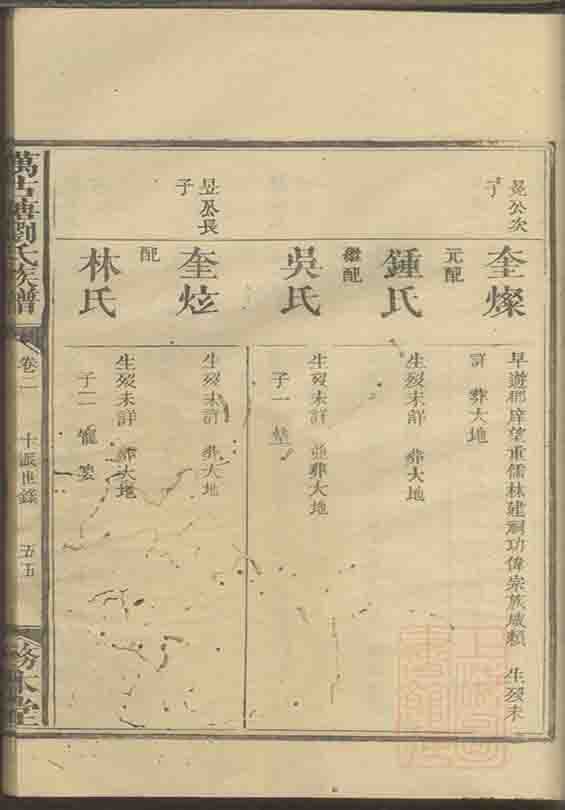 晃公次
子
奎燦
早遊郡庠望重儒林建祠功偉宗族咸賴 生歿未
詳 葬大地
元配
鍾氏
生歿未詳 葬大地
繼配
吳氏
生歿未詳 並葬大地
子一
昱公長
子
奎炫
生歿未詳 葬大地
配
林氏
生歿未詳 葬大地
子二
萬古塘劉氏族譜
卷二
十派世錄
五五
務本堂